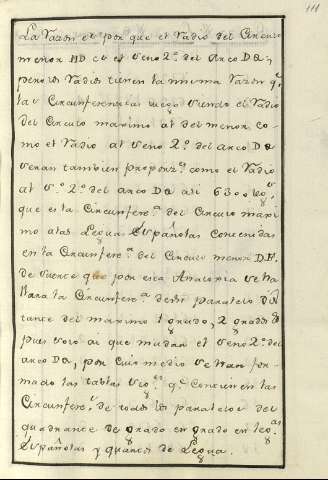 111
La Razon es por que el Radio del Circulo
menor HD es el seno 2º. del Arco DQ,
pero los Radios tienen la misma Razon qᵉ.
las Circunferencias luego siendo el Radio
del Circulo maximo al del menor co-
mo el Radio al seno 2º. del arco DQ
seran tambien proporᵉˢ. como el Radio
al s.º 2º. del arco DQ asi 6300 leg.ˢ
que es la Circunferᵃ. del Circulo maxi-
mo a las Leguas Españolas contenidas
en la Circunferᵃ. del Circulo menor D.F.
de suerte que por esta Analogia se ha-
llara la Circunferᵃ. del parallelo dis
tante del maximo 1 grado, 2 grados &
pues solo ai que mudar el seno 2º. del
arco DQ, por cuio medio se han for-
mado las tablas sig.ˢ qᵉ. contienen las
Circunfer.ˢ de todos los paralelos del
quadrante de grado en grado en leg.ᵃˢ
Españolas y quartos de Legua.